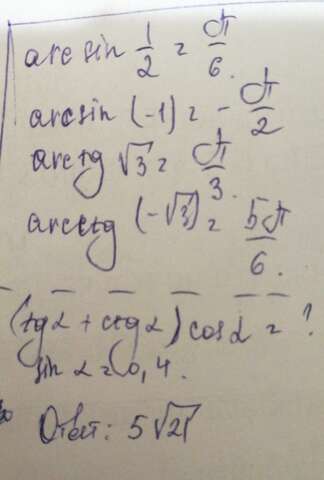 arcsin 1/2 = π/6.
arcsin (-1) = - π/2
arctg √3 = π/3.
arcctg (-√3) = 5π/6.
(tgα + ctgα) cosα = ?
sin α = 0,4.
Ответ: 5√21